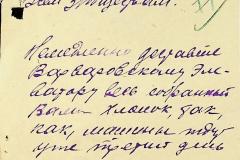 Немедленно доставте
Варваровскому Эле-
ватору весь собранный
Вами хлопок, так,
как, машины ждут
уже третий день